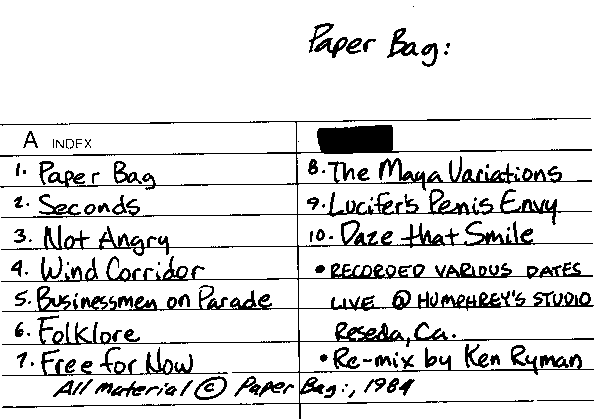 Paper Bag:
A INDEX
1. Paper Bag
2. Seconds
3. Not Angry
4. Wind Corridor
5. Businessmen on Parade
6. Folklore
7. Free for Now
8. The Maya Variations
9. Lucifer's Penis Envy
10. Daze that Smile
• RECORDED VARIOUS DATES
LIVE @ HUMPHREY'S STUDIO
Reseda, Ca.
• Re-mix by Ken Ryman
All material © Paper Bag:, 1984